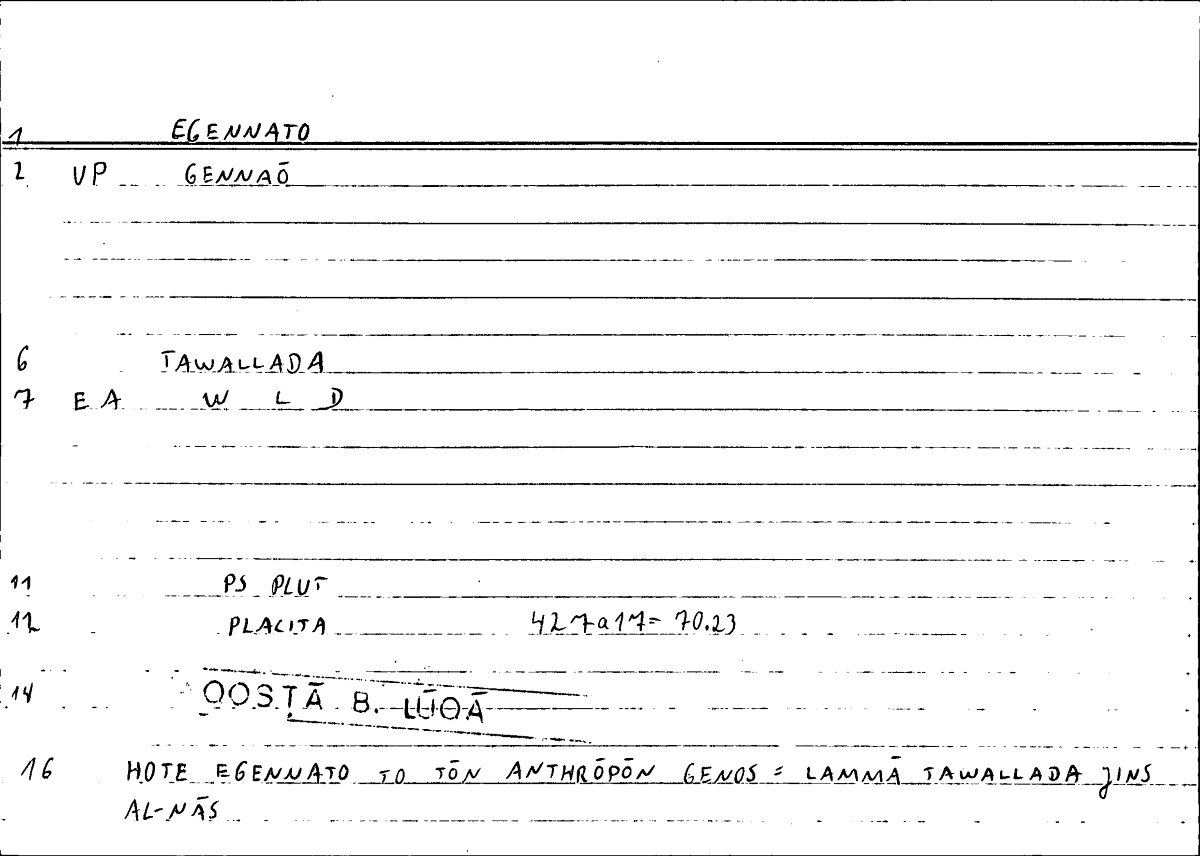 1 EGENNATO
2 VP GENNAŌ
6 TAWALLADA
7 EA W L D
11 PS PLUT
12 PLACITA 427a17= 70.23
14 QOSṬĀ B. LŪQĀ
16 HOTE EGENNATO TO TŌN ANTHRŌPŌN GENOS = LAMMĀ TAWALLADA JINS
AL-NĀS